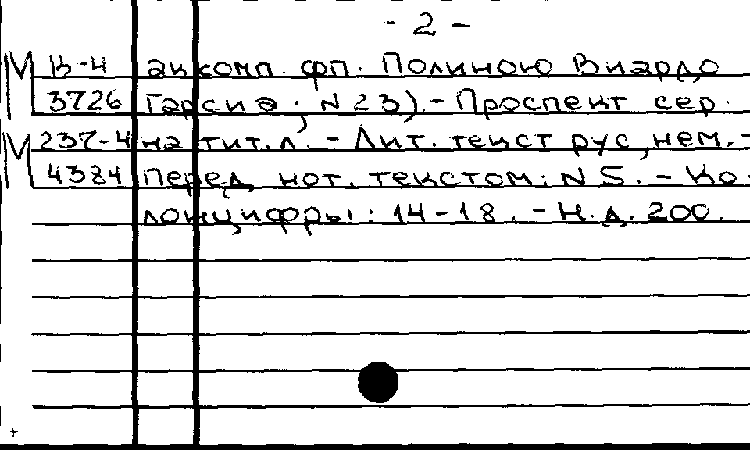 - 2 -
М В-4 акком. фп. Полиною Виардо
3726 Гарсиа; N 23). - Проспект сер.
М 237-4 на тит. л. - Лит. текст рус, нем. -
4384 перед нот. текстом: N 5. - Ко-
лонцифры: 14-18. - Н.д. 200.